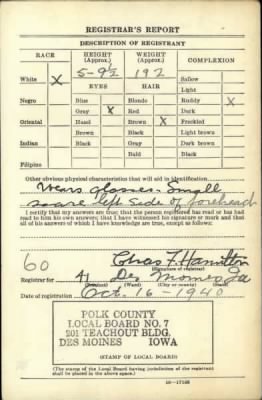 REGISTRAR'S REPORT
DESCRIPTION OF REGISTRANT
RACE HEIGHT (Approx.) WEIGHT (Approx.) COMPLEXION
5-9½ 192
White X Sallow
EYES HAIR Light
Negro Blue Blonde Ruddy X
Gray X Red Dark
Oriental Hazel Brown X Freckled
Brown Black Light brown
Indian Black Gray Dark brown
Bald Black
Filipino
Other obvious physical characteristics that will aid in identification
Wears glasses - Small
scare left side of forehead
I certify that my answers are true; that the person registered has read or has had read to him his own answers; that I have witnessed his signature or mark and that all of his answers of which I have knowledge are true, except as follows:
Chas F. Hamilton
(Signature of registrar)
60
Registrar for 41 Des Moines Ia
(Precinct) (Ward) (City or county) (State)
Date of registration Oct. 16 - 1940
POLK COUNTY
LOCAL BOARD NO. 7
201 TEACHOUT BLDG.
DES MOINES IOWA
(STAMP OF LOCAL BOARD)
(The stamp of the Local Board having jurisdiction of the registrant shall be placed in the above space.)